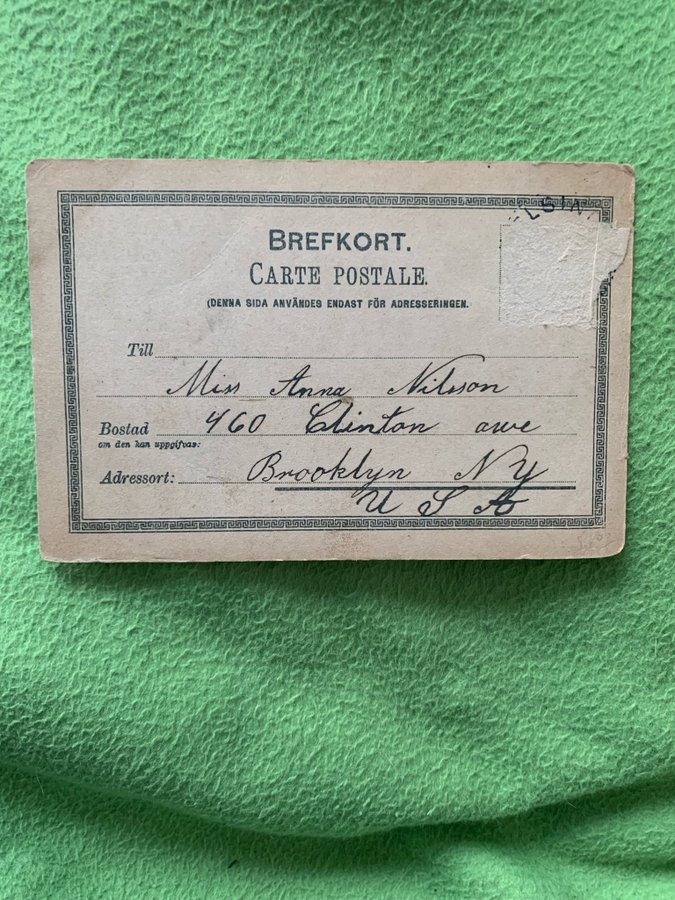 BREFKORT.
CARTE POSTALE.
(DENNA SIDA ANVÄNDES ENDAST FÖR ADRESSERINGEN.
Till
Miss Anna Nilsson
Bostad 460 Clinton awe
om den kan uppgifvas:
Adressort: Brooklyn NY
U S A